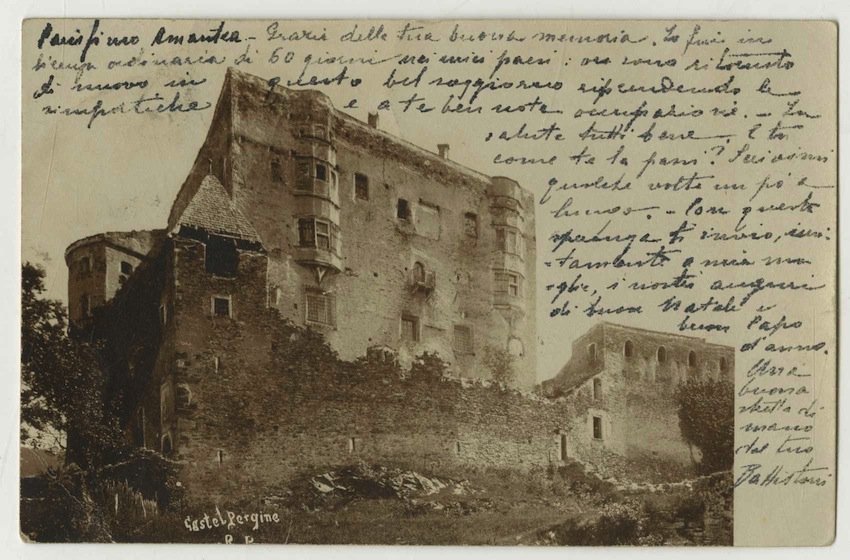 Amantea - Grazie della tua buona memoria. Io fui in
licenza ordinaria di 60 giorni nei miei paesi: ora sono ritornato
di nuovo in questo bel soggiorno riprendendo le
simpatiche e a te ben note occupazioni. - In
salute tutti bene. E tu
come te la passi? Scrivimi
qualche volta un pò a
lungo. - Con questa
speranza ti invio, uni-
tamente a mia mo-
glie, i nostri auguri
di buon Natale e
buon Capo
d'anno.
Una
buona
stretta di
mano
dal tuo
Battistoni
Castel Pergine